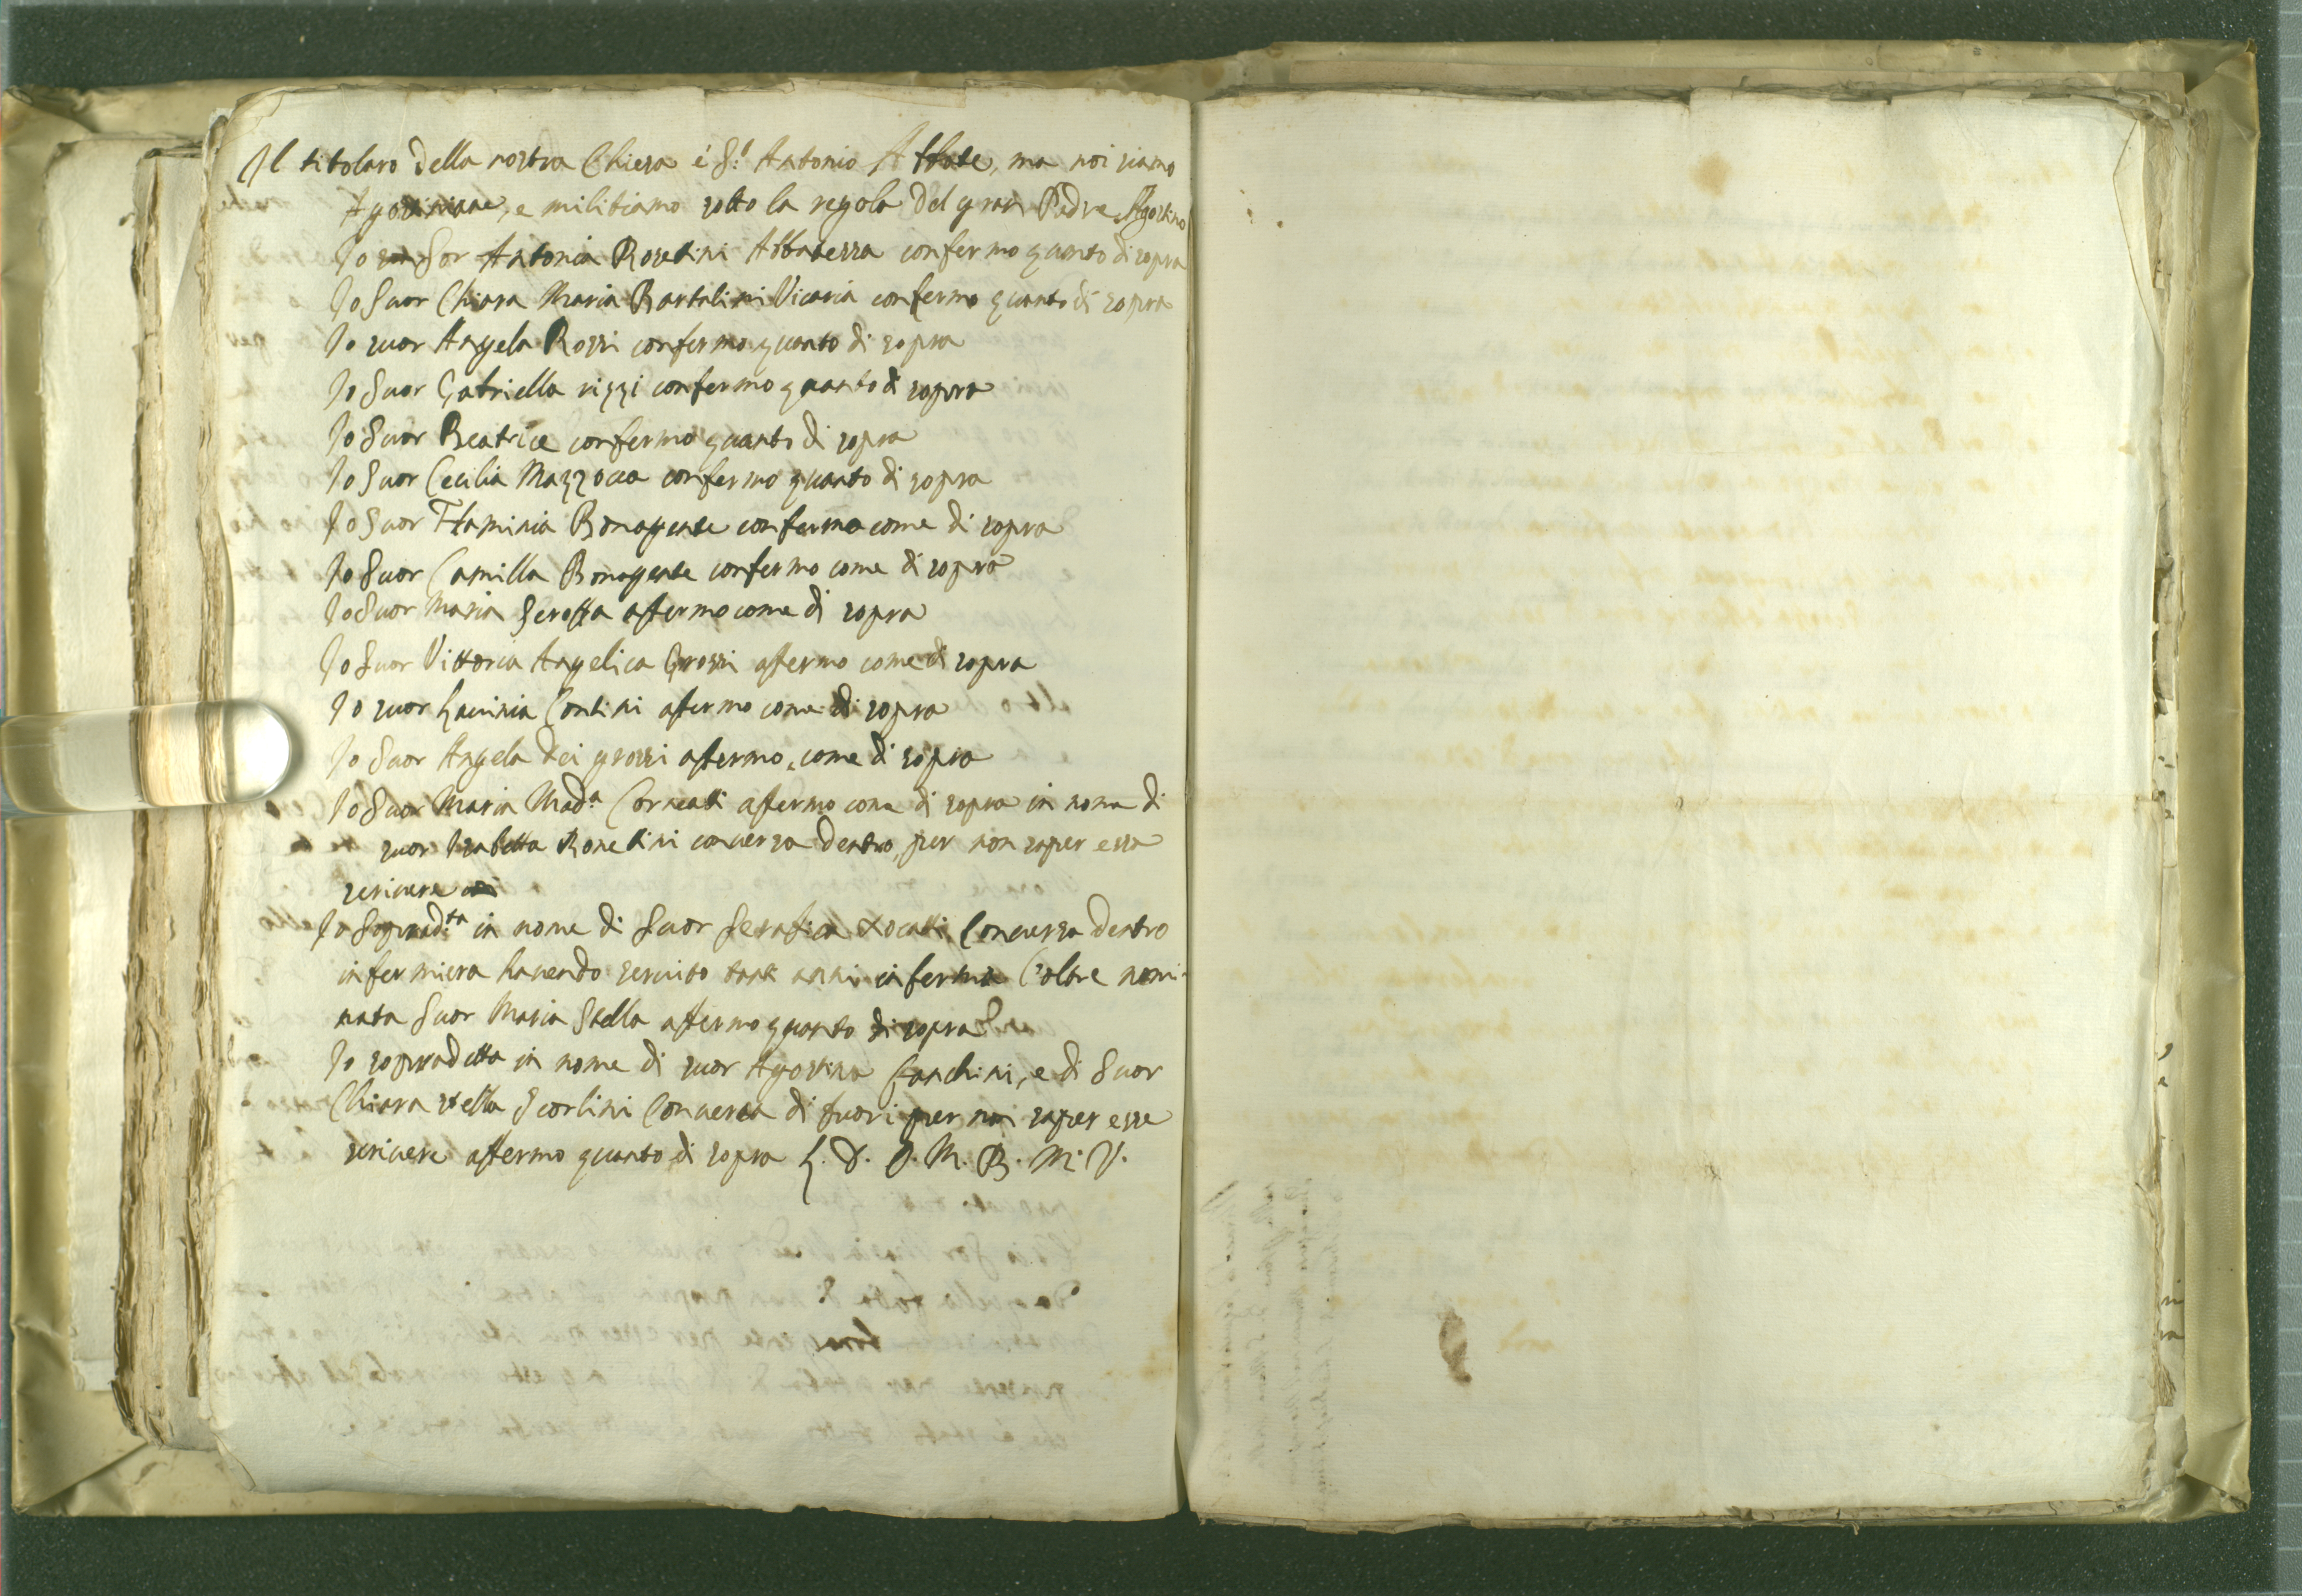 Il titolaro della nostra Chiesa é S.t Antonio Abbate, ma noi siamo
Agostiniane, e militiamo sotto la regola del gran Padre Agostino
Io Sor Antonia Rosetini Abbatessa confermo quanto di sopra
Io Suor Chiara Maria Bartolini Vicaria confermo quanto di sopra
Io suor Angela Rossi confermo quanto di sopra
Io Suor Gabriella rizzi confermo quanto di sopra
Io Suor Beatrice confermo quanto di sopra
Io Suor Cecilia Mazzocca confermo quanto di sopra
Io Suor Flaminia Bonagente confermo come di sopra
Io Suor Camilla Bonagente confermo come di sopra
Io Suor Maria afermo come di sopra
Io Suor Vittoria Angelica Grossi afermo come di sopra
Io suor Lavinia Contini afermo come di sopra
Io Suor Angela dei grossi afermo, come di sopra
Io Suor Maria Mad.a afermo come di sopra in nome di
suor Isabetta conversa dentro, per non saper essa
scrivere
Io Soprad.ta in nome di Suor Serafica Conversa dentro
infermiera havendo servito tant anni inferma l'oltre nomi-
nata Suor Maria Stella afermo quanto di sopra
Io sopradetta in nome di suor Agostina e di Suor
Chiara stella Scorlini Conversa di fuori per non saper esse
scrivere affermo quanto di sopra L. D. O. M. B. M. V.